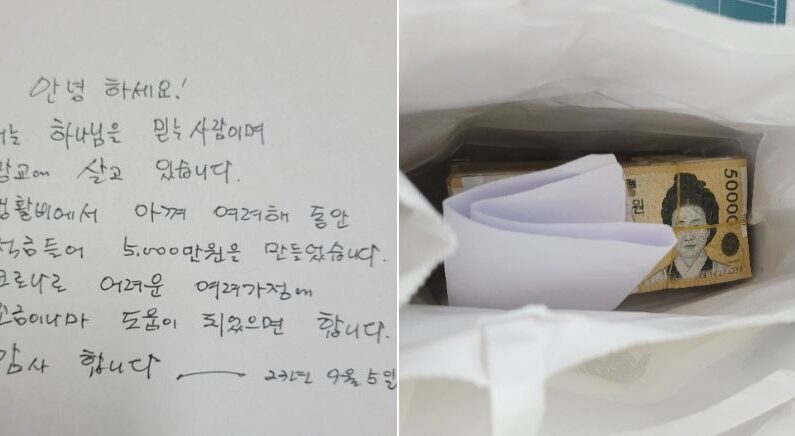 안녕 하세요!
하나님은 믿는 사람이며
살고 있습니다.
생활비에서 아껴 여려해 동안
적금들어 5,000만원을 만들었습니다.
코로나로 어려운 여러가정에
조금이나마 도움이 되었으면 합니다.
감사 합니다 23년 9월 5일
원 50000